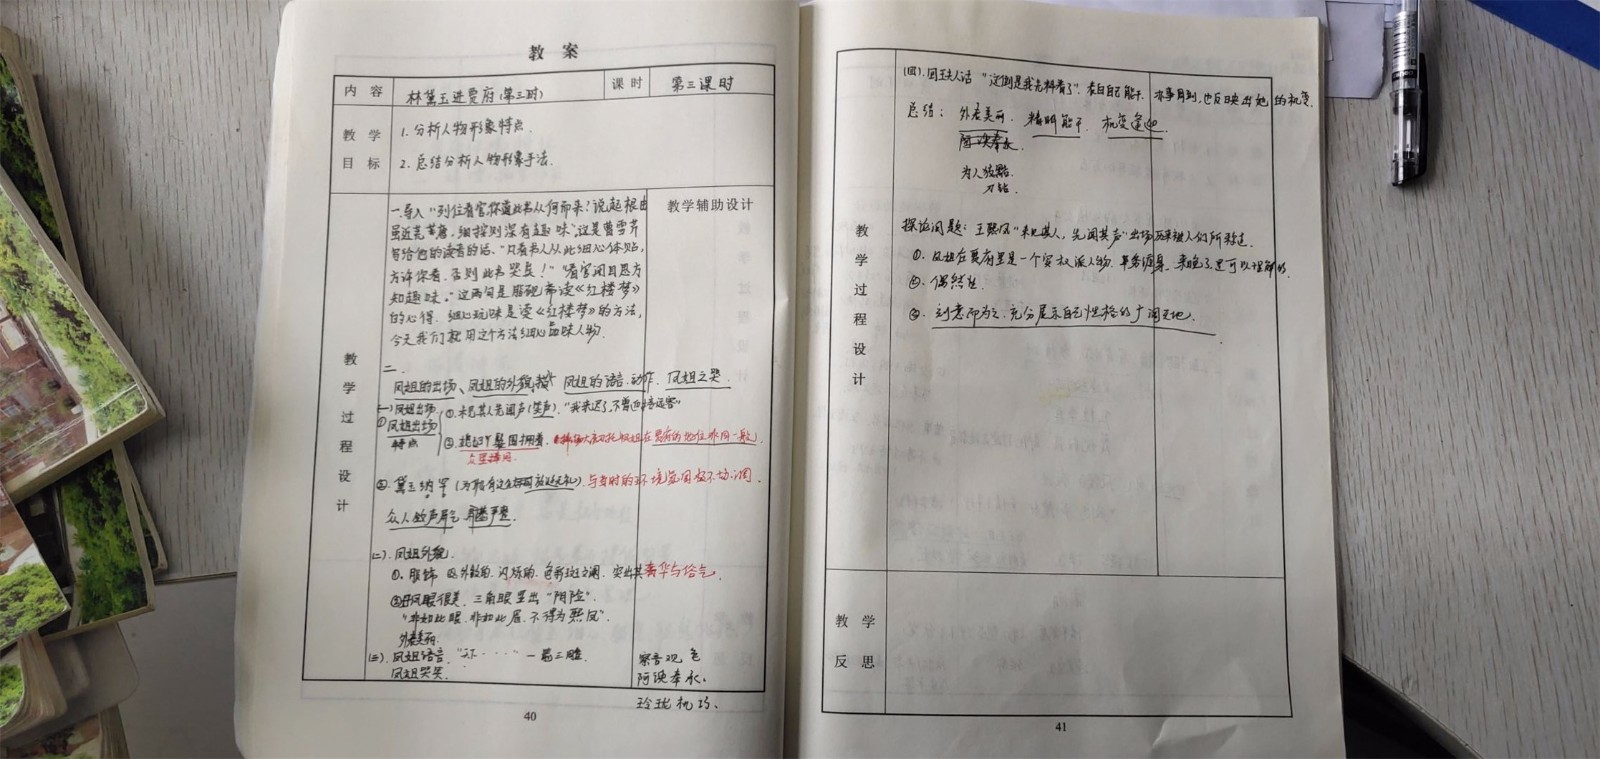 教 案
内 容 林黛玉进贾府(第三时) 课 时 第三课时
教 学 目 标
1. 分析人物形象特点.
2. 总结分析人物形象手法.
教学过程设计
教学辅助设计
一.导入 "列位看官,你道此书从何而来? 说起根由
虽近荒唐, 细按则深有趣味"这是曹雪芹
写给他的读者的话、"凡看书人从此细心体贴,
方许你看, 否则此书哭矣!" "看官闭目思方
知趣味。"这两句是脂砚斋读《红楼梦》
的心得. 细心玩味是读《红楼梦》的方法,
今天我们就用这个方法细心品味人物.
二.
凤姐的出场、凤姐的外貌 凤姐的语言.动作. 凤姐之哭.
(一)凤姐出场. ①.未见其人先闻声(笑声). "我来迟了,不曾迎接远客"
① 凤姐出场
特点
② 媳妇丫鬟围拥着, 凤姐在贾府的地位非同一般
②. 黛玉纳罕 与当时的环境氛围极不协调.
众人敛声屏气
(二). 凤姐外貌.
①. 服饰 闪烁的. 色彩斑斓. 突出其奢华与俗气.
②丹凤眼很美, 三角眼显出"阴险".
"非如此眼. 非如此眉. 不得为熙凤".
外表美丽.
(三). 凤姐语言. 
凤姐哭笑.
察言观色
阿谀奉承、
玲珑机巧、
40
(四). 回王夫人话 "这倒是我先料着了". 表白自己能干. 办事周到, 也反映出她的机变.
总结: 外表美丽. 精明能干. 机变逢迎
阿谀奉承.
为人狡黠.
刁钻.
教学过程设计
探讨问题: 王熙凤"未见其人, 先闻其声"出场历来被人们所称道.
①. 凤姐在贾府里是一个实权派人物. 来晚了是可以理解的.
②. 偶然性.
③. 刻意而为之. 充分展示自己性格的广阔天地.
教 学
反 思
41